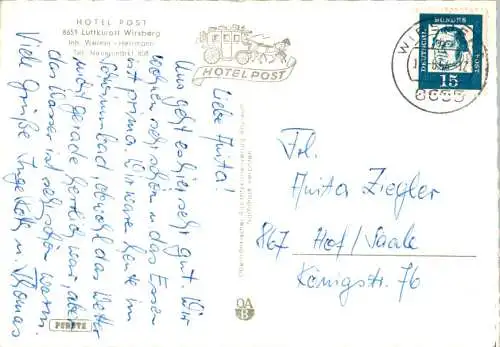 HOTEL POST
8651 Luftkurort Wirsberg
Tel. Neuenmarkt 858
HOTEL POST
Liebe Anita!
Uns geht es hier sehr gut. Wir
wohnen sehr schön u. das Essen
ist prima. Wir waren heute im
Schwimmbad, obwohl das Wetter
nicht gerade herrlich war, aber
das Wasser ist sehr schön warm.
Viele Grüße Inge, u. Thomas
PURETZ
OA
B
DEUTSCHE
BUNDES
POST
15
8655
Frl.
Anita Ziegler
867 Hof/Saale
Königstr. 76